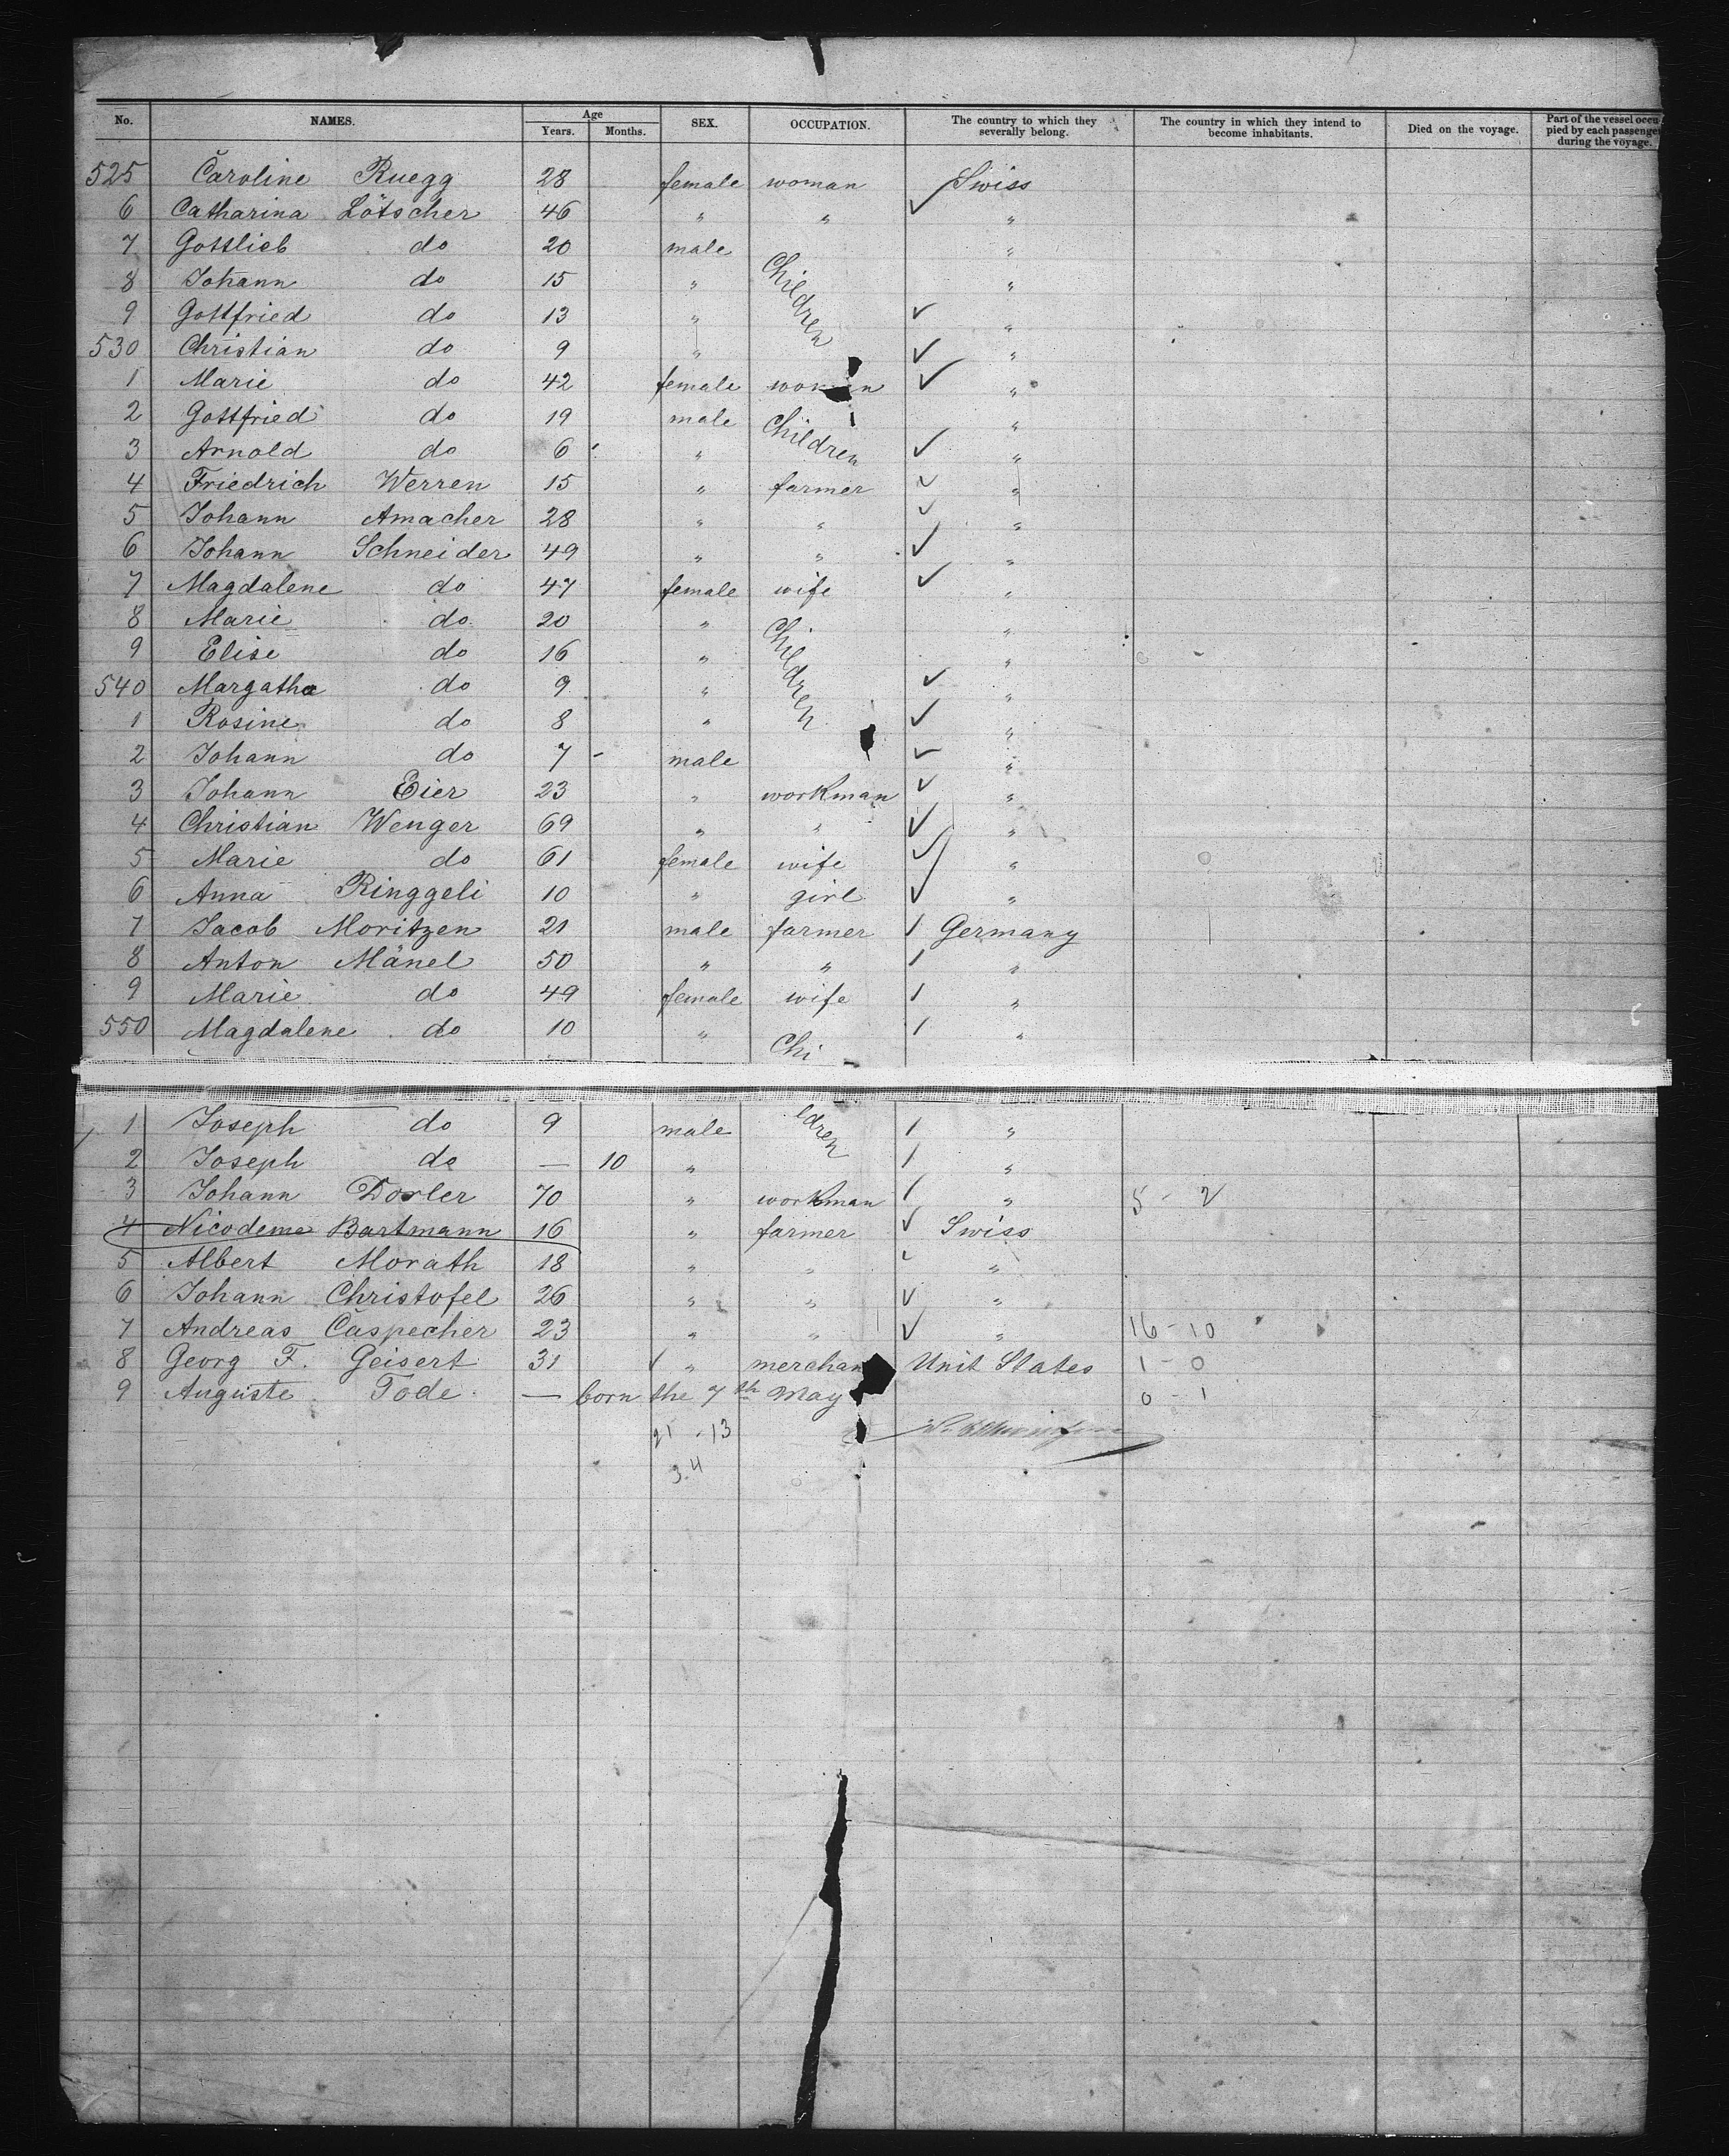 No. NAMES. Age Years. Months. SEX. OCCUPATION. The country to which they severally belong. The country in which they intend to become inhabitants. Died on the voyage. Part of the vessel occupied by each passenger during the voyage.
525 Caroline Ruegg 28 female woman Swiss
6 Catharina Lötscher 46 " " "
7 Gottlieb do 20 male "
8 Johann do 15 " Children "
9 Gottfried do 13 " "
530 Christian do 9 " "
1 Marie do 42 female woman "
2 Gottfried do 19 male Children "
3 Arnold do 6 " "
4 Friedrich Werren 15 " farmer "
5 Johann Amacher 28 " " "
6 Johann Schneider 49 " " "
7 Magdalene do 47 female wife "
8 Marie do 20 " Children "
9 Elise do 16 " "
540 Margatha do 9 " "
1 Rosine do 8 " "
2 Johann do 7 male "
3 Johann Eier 23 " workman "
4 Christian Wenger 69 " " "
5 Marie do 61 female wife "
6 Anna Ringgeli 10 " girl "
7 Jacob Moritzen 21 male farmer Germany
8 Anton Mänel 50 " " "
9 Marie do 49 female wife "
550 Magdalene do 10 " Chi "
1 Joseph do 9 male ldren "
2 Joseph do — 10 " "
3 Johann Dorler 70 " workman " 5 - 2
4 Nicodeme Bartmann 16 " farmer Swiss
5 Albert Morath 18 " " "
6 Johann Christofel 26 " " "
7 Andreas Caspecher 23 " " " 16 - 10
8 Georg F. Geisert 31 " merchan Unit States 1 - 0
9 Auguste Tode — born the 7th May 0 - 1
21 - 13
34